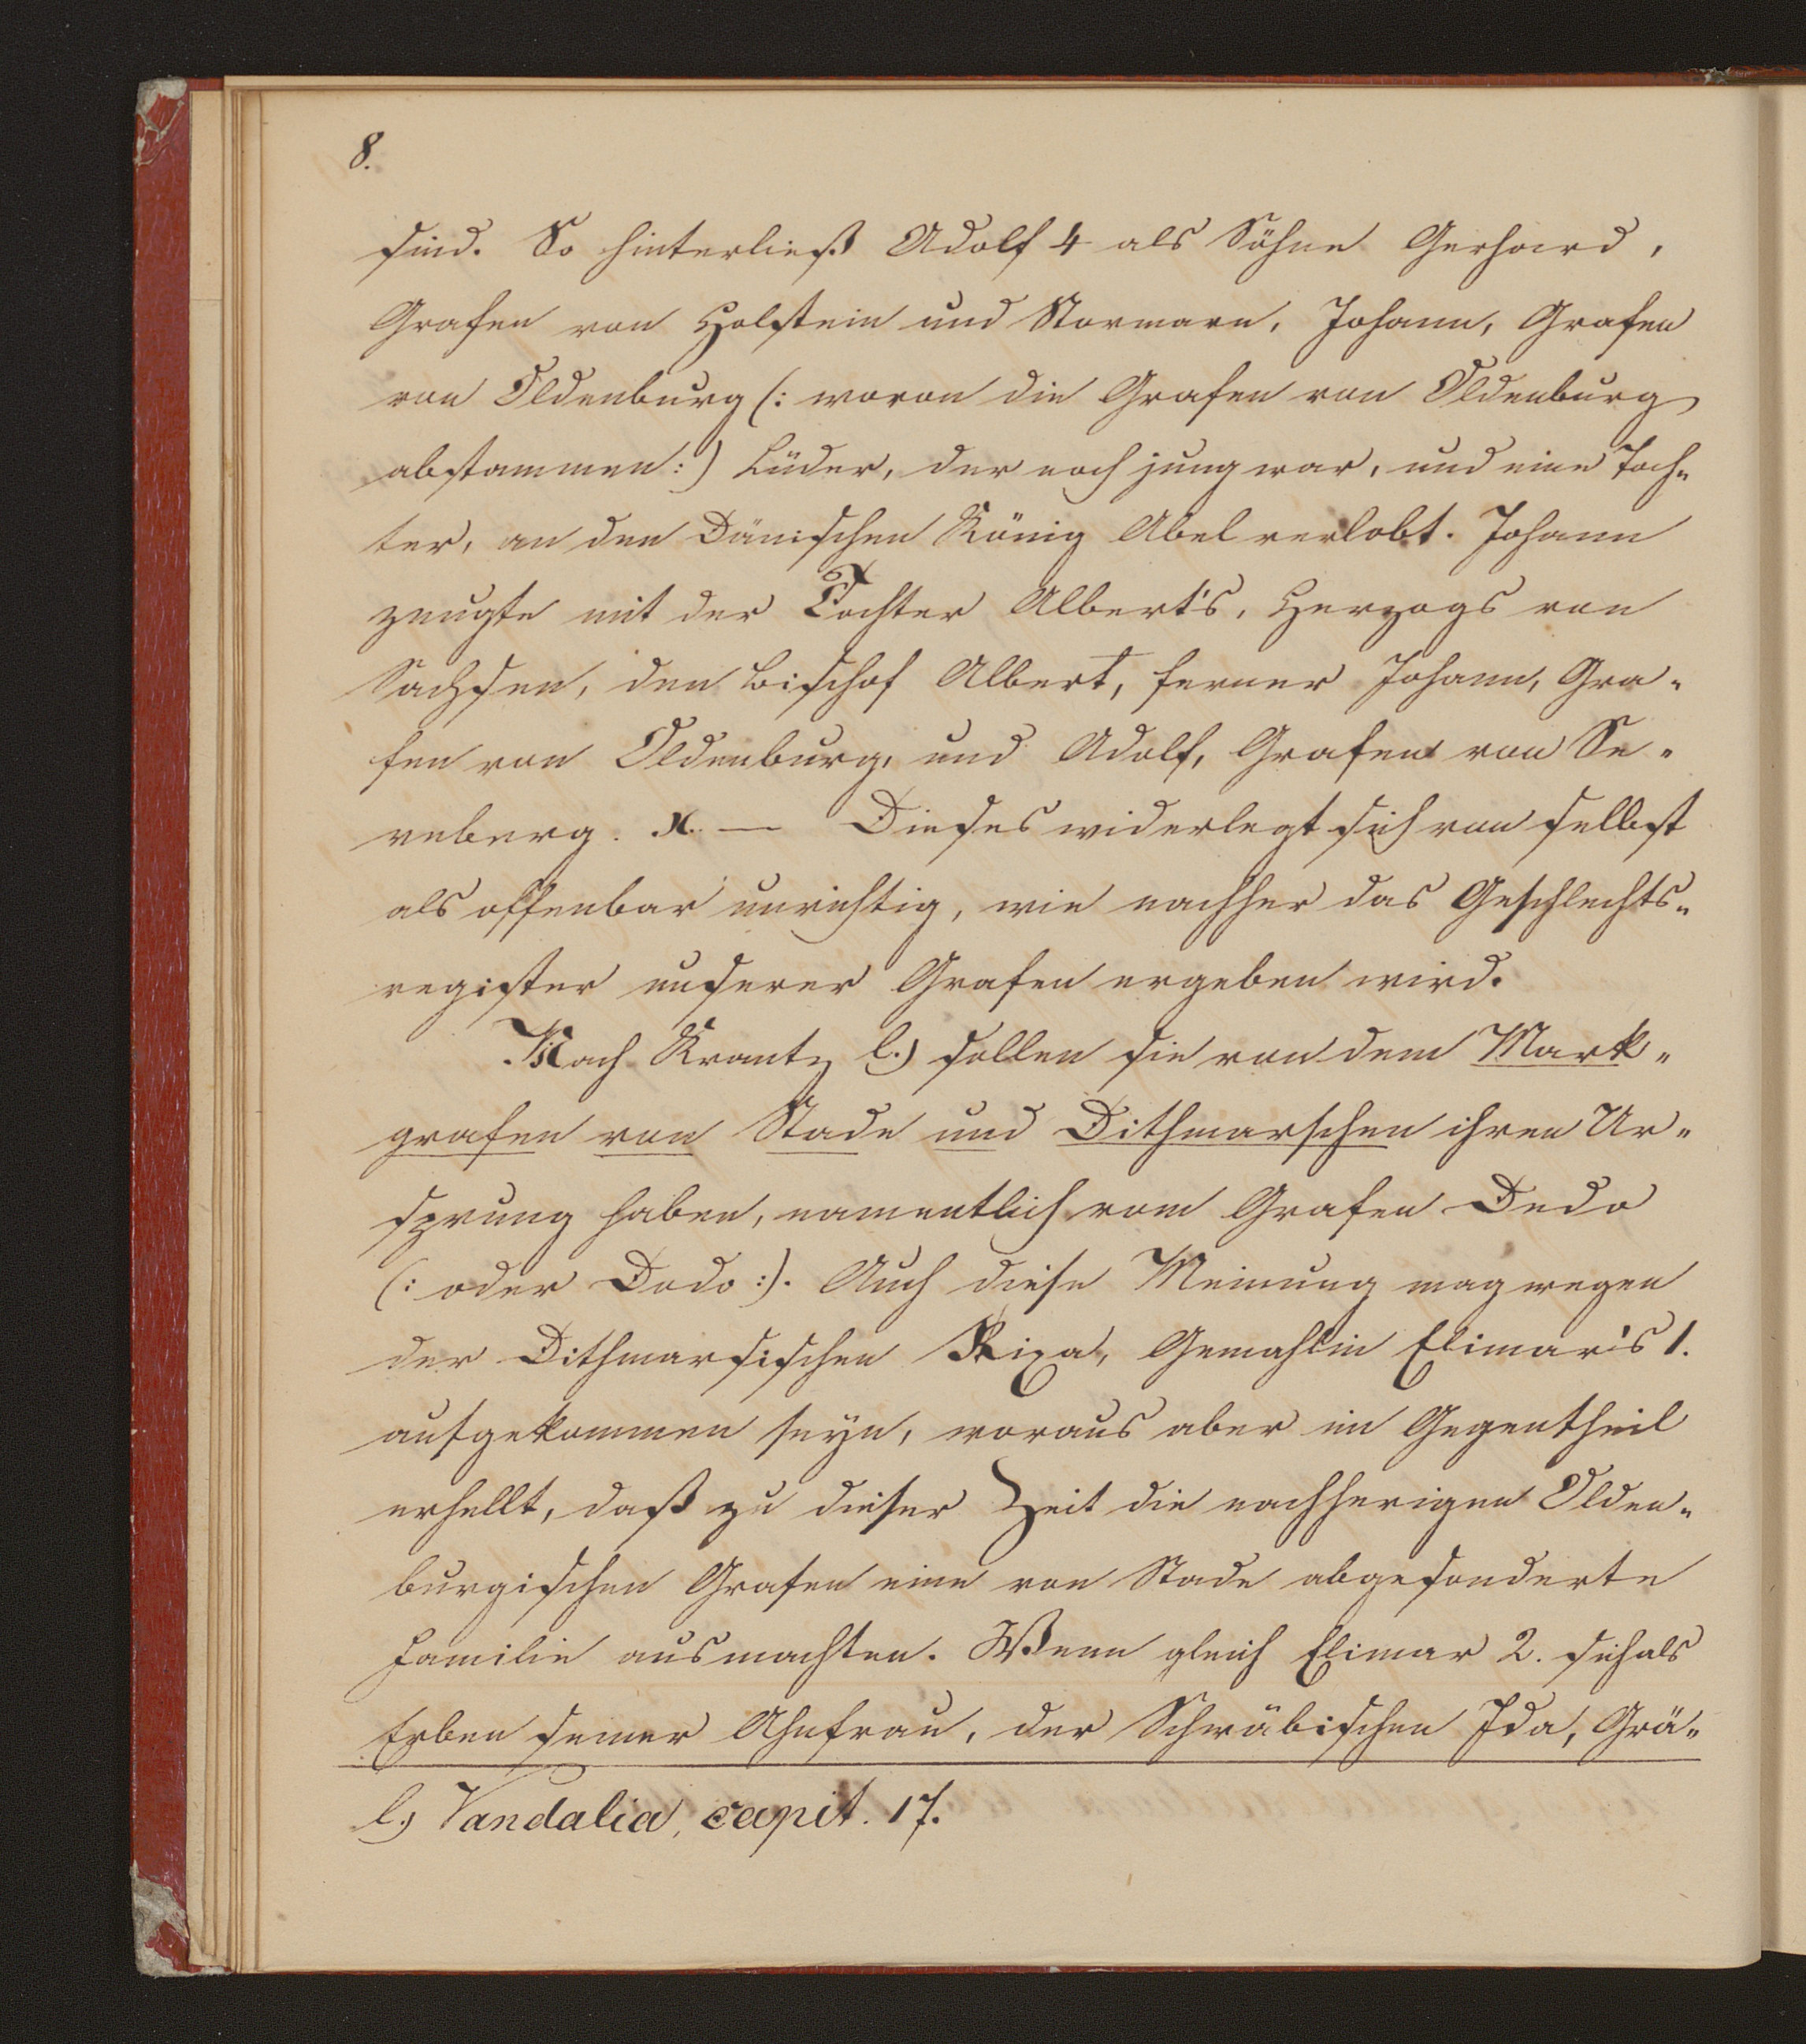 8.
sind. So hinterließ Adolf 4 als Söhne Gerhard,
Grafen von Holstein und Stormarn, Johann, Grafen
von Oldenburg (: wovon die Grafen von Oldenburg
abstammen :) Lüder, der noch jung war, und eine Toch-
ter, an den Dänischen König Abel verlobt. Johann
zeugte mit der Tochter Albert's, Herzogs von
Sachsen, den Bischof Albert, ferner Johann, Gra-
fen von Oldenburg, und Adolf, Grafen von Se-
veberg. x. — Dieses widerlegt sich von selbst
als offenbar unrichtig, wie nachher das Geschlechts-
register unserer Grafen ergeben wird.
Nach Krantz l.) sollen sie von dem Mark-
grafen von Stade und Dithmarschen ihren Ur-
sprung haben, namentlich vom Grafen Dedo
(: oder Dodo :). Auch diese Meinung mag wegen
der Dithmarsischen Rixa, Gemahlin Elimar's 1.
aufgekommen seyn, woraus aber im Gegentheil
erhellt, daß zu dieser Zeit die nachherigen Olden-
burgischen Grafen eine von Stade abgesonderte
Familie ausmachten. Wenn gleich Elimar 2. sich als
Erben seiner Ahnfrau, der Schwäbischen Ida, Grä-
l.) Vandalia, capit. 17.